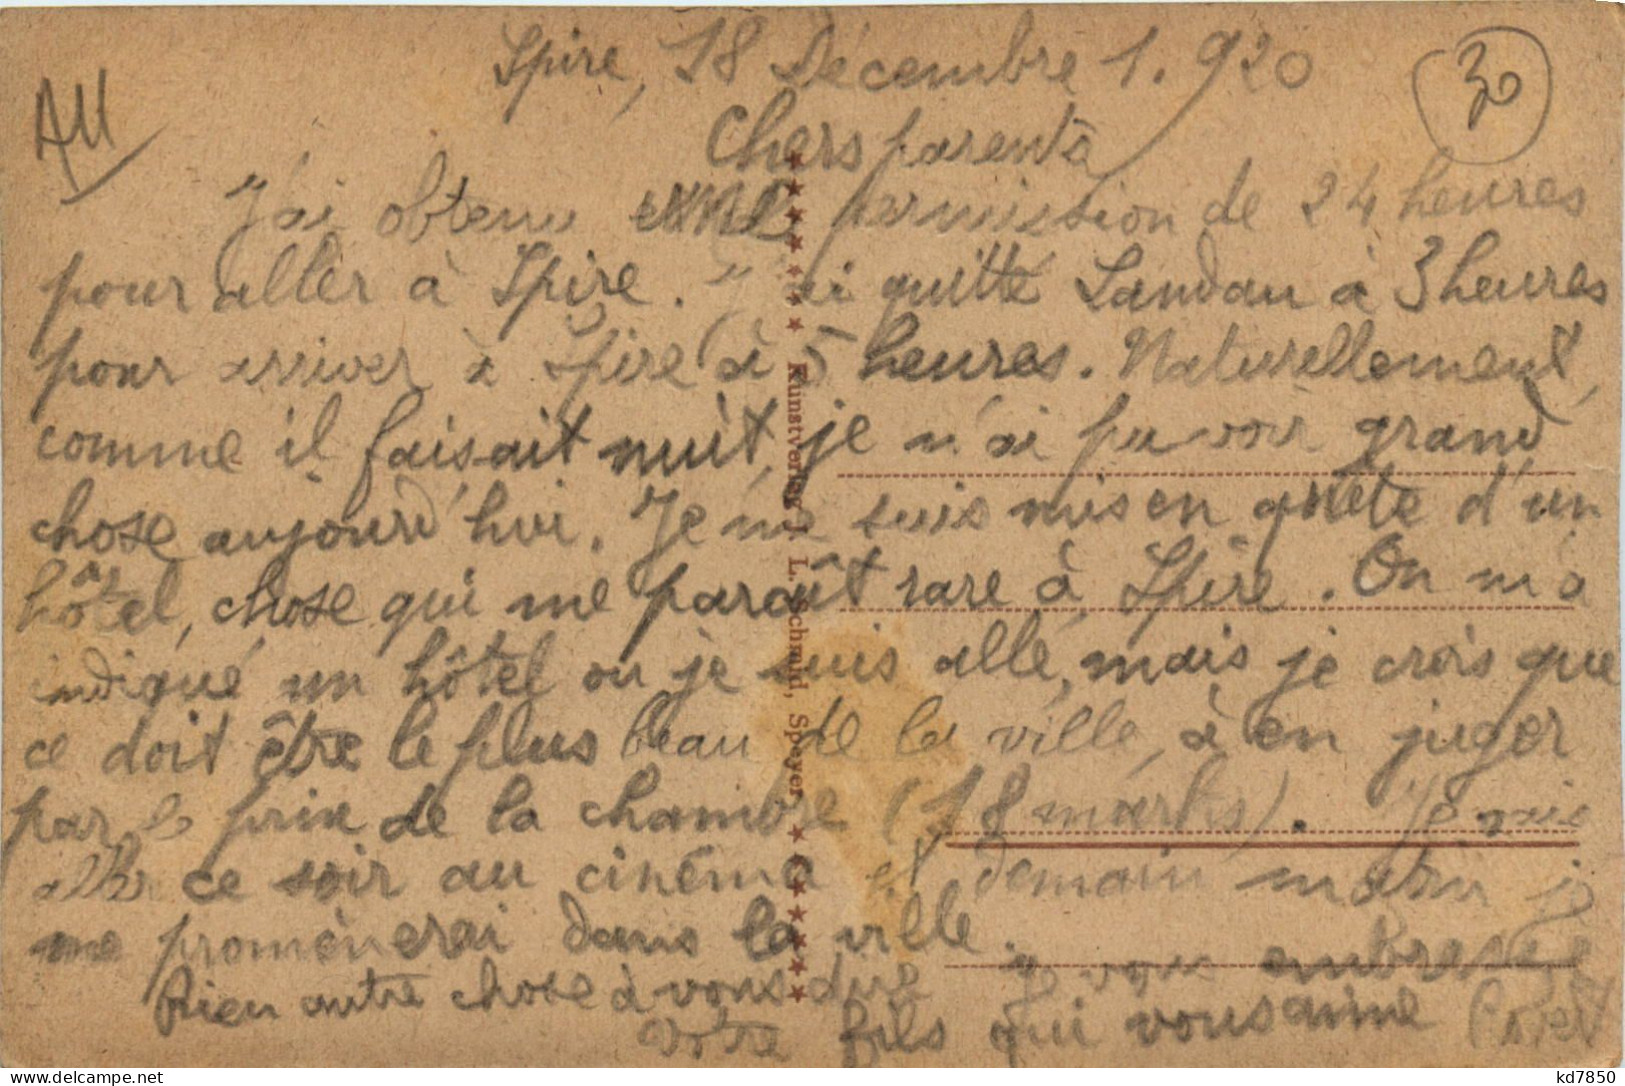 Spire, 18 Décembre 1.920
30
AU
Chers parents
J'ai obtenu une permission de 24 heures
pour aller à Spire. J'ai quitté Landau à 3 heures
pour arriver à Spire à 5 heures. Naturellement,
comme il faisait nuit, je n'ai pu voir grand
chose aujourd'hui. Je me suis mis en quête d'un
hôtel, chose qui me paraît rare à Spire. On m'a
indiqué un hôtel ou je suis allé, mais je crois que
ce doit être le plus beau de la ville, à en juger
par le prix de la chambre (18 marks). Je vais
aller ce soir au cinéma et demain matin je
me promènerai dans la ville.
Rien autre chose à vous dire je vous embrasse
Votre fils qui vous aime
Kunstverlag L. Schmid, Speyer
kd7850